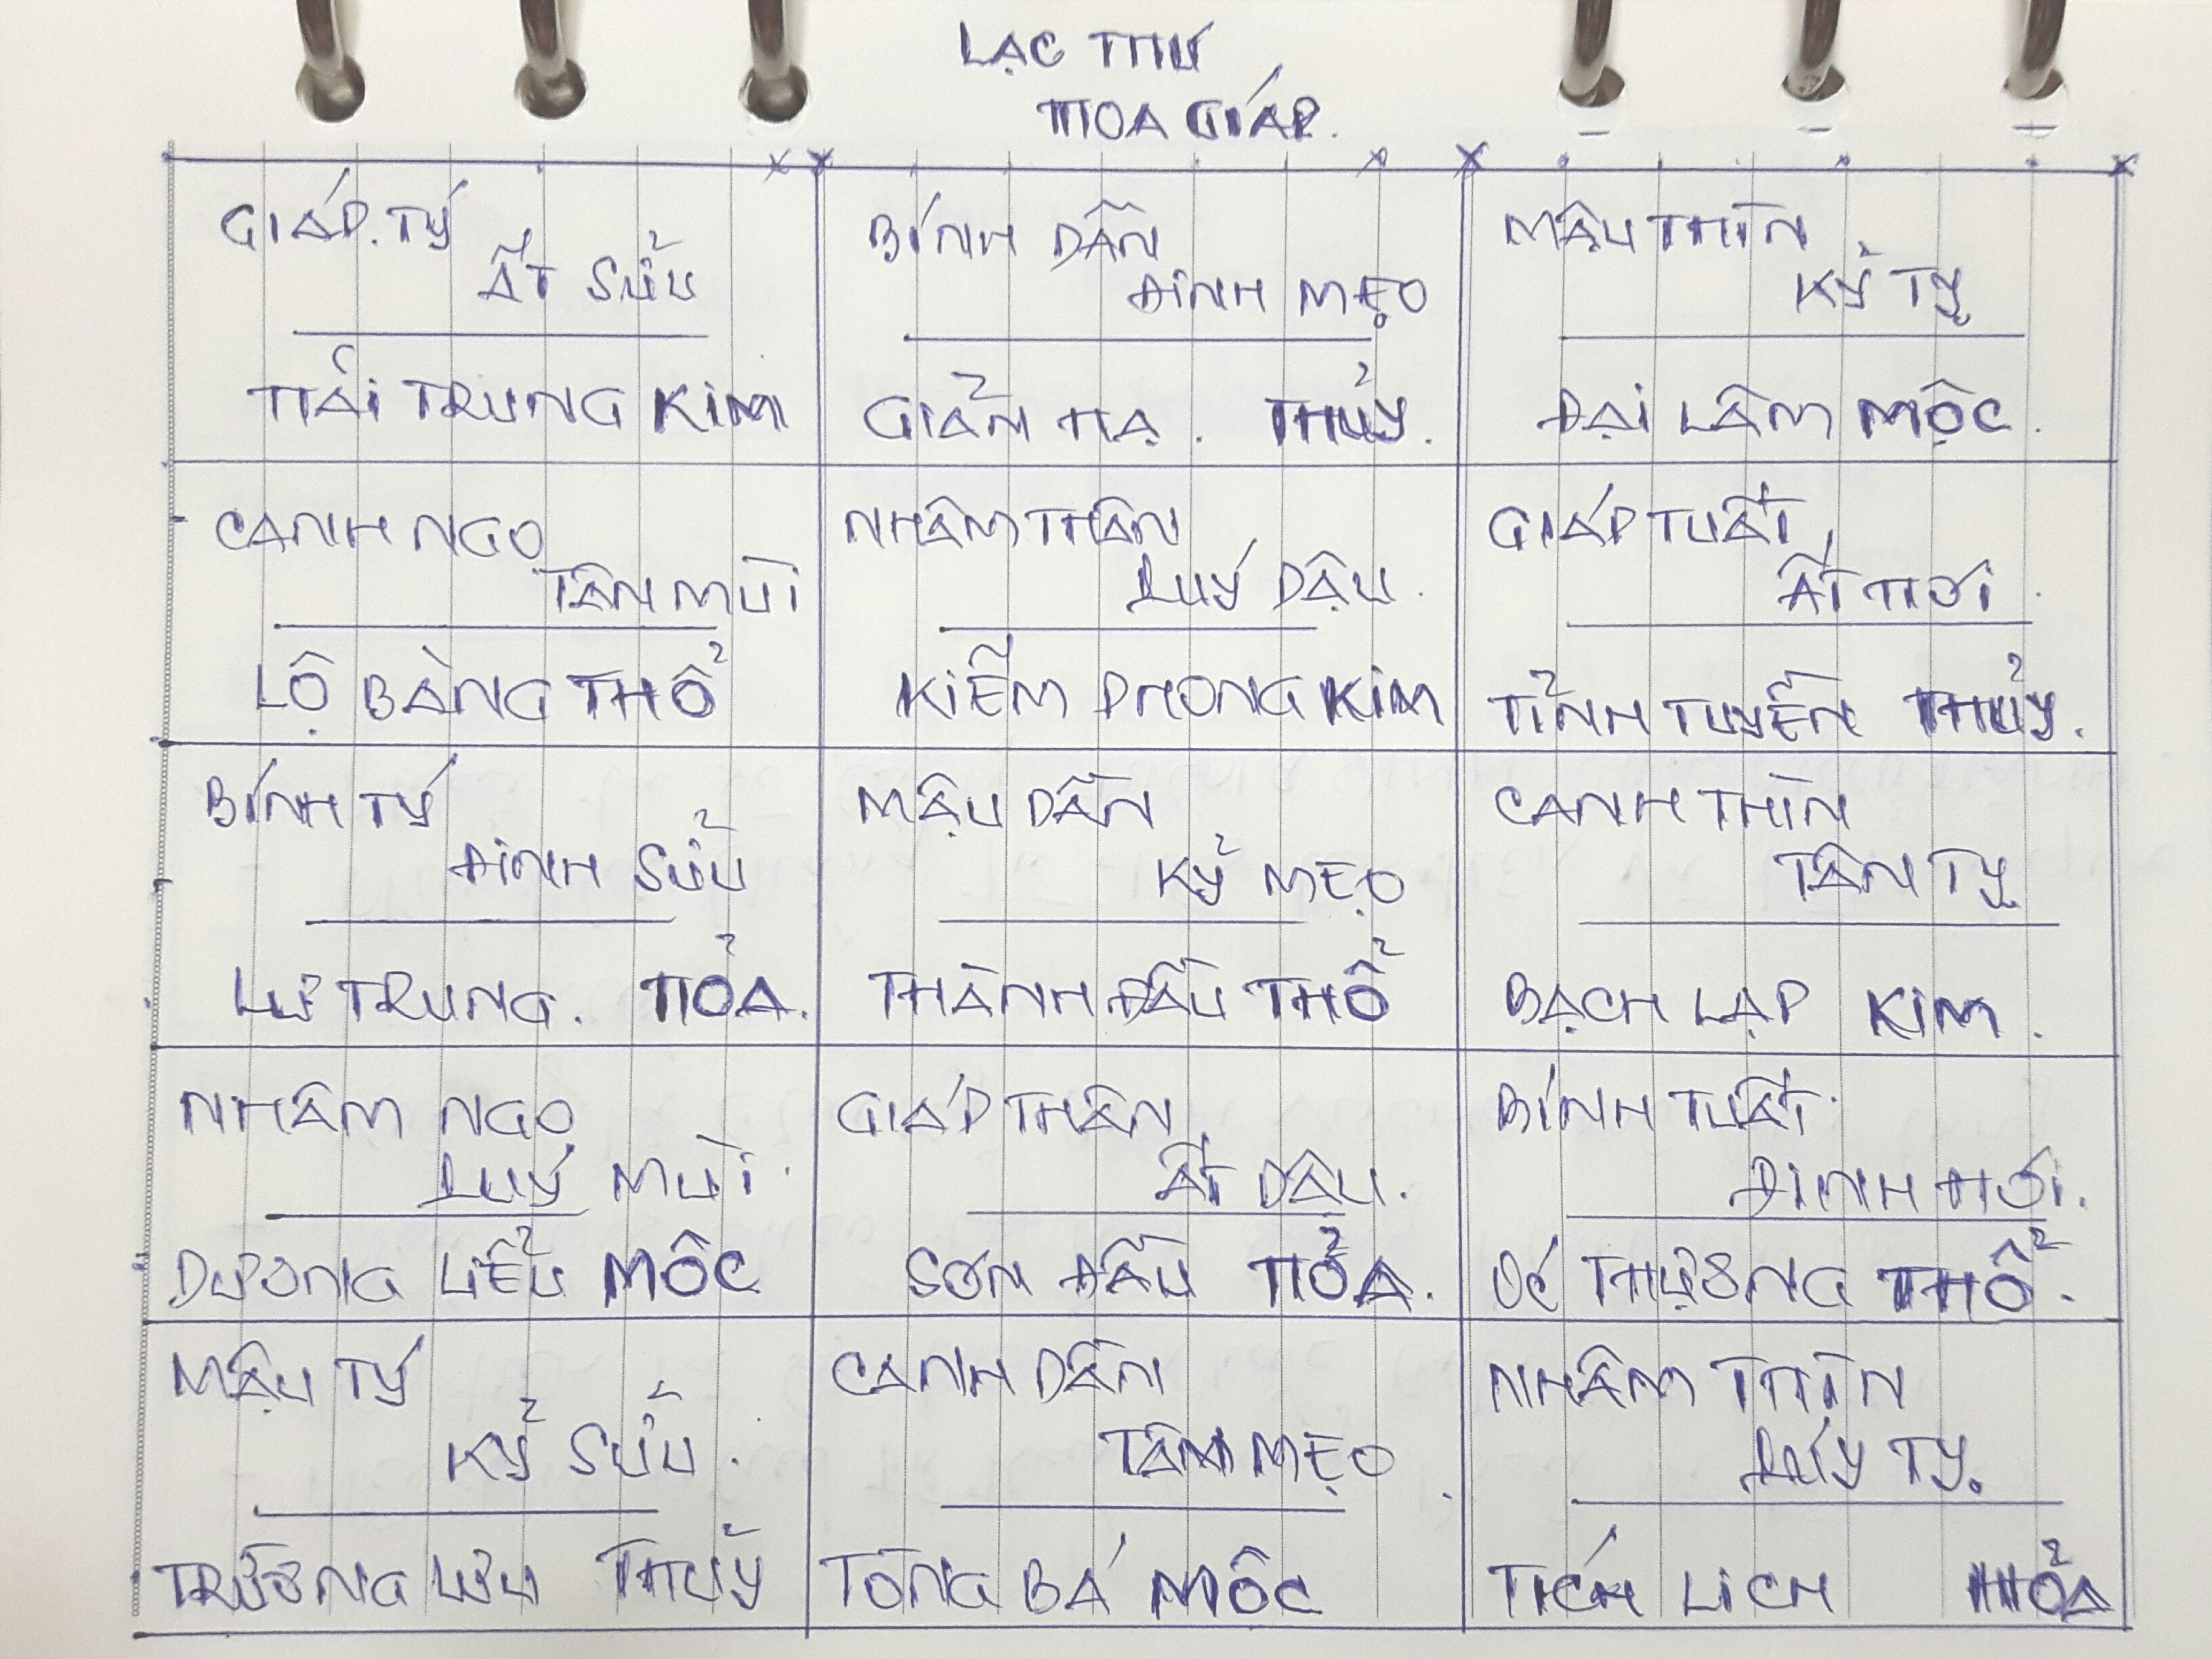 LẠC THƯ
HOA GIÁP.
GIÁP.TÝ
ẤT SỬU
HẢI TRUNG KIM
BÍNH DẦN
ĐINH MẸO
GIẢN HẠ. THỦY.
MẬU THÌN
KỶ TỴ
ĐẠI LÂM MỘC.
CANH NGỌ
TÂN MÙI
LỘ BÀNG THỔ
NHÂM THÂN
QUÝ DẬU.
KIẾM PHONG KIM
GIÁP TUẤT
ẤT HỢI.
TỈNH TUYỀN THỦY.
BÍNH TÝ
ĐINH SỬU
LƯ TRUNG. HỎA.
MẬU DẦN
KỶ MẸO
THÀNH ĐẦU THỔ
CANH THÌN
TÂN TỴ
BẠCH LẠP KIM.
NHÂM NGỌ
QUÝ MÙI.
DƯƠNG LIỂU MỘC
GIÁP THÂN
ẤT DẬU.
SƠN ĐẦU HỎA.
BÍNH TUẤT.
ĐINH HỢI.
ỐC THƯỢNG THỔ.
MẬU TÝ
KỶ SỬU.
TRƯỜNG LƯU THỦY
CANH DẦN
TÂN MẸO
TÒNG BÁ MỘC
NHÂM THÌN
QUÝ TỴ.
TÍCH LỊCH HỎA